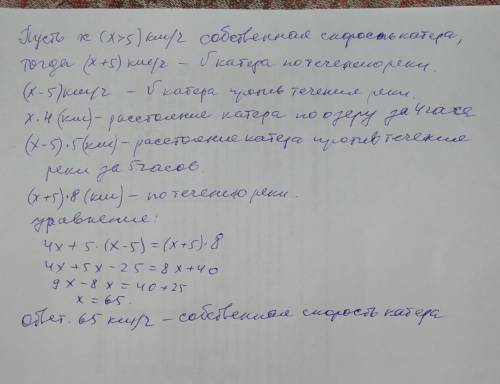 Пусть x (x>5) км/г собственная скорость катера,
тогда (x+5) км/г – V катера по течению реки.
(x-5) км/г – V катера против течения реки.
x·4 (км) – расстояние катера по озеру за 4 часа
(x-5)·5 (км) – расстояние катера против течение
реки за 5 часов.
(x+5)·8 (км) – по течению реки.
уравнение:
4x + 5·(x-5) = (x+5)·8
4x + 5x - 25 = 8x + 40
9x - 8x = 40 + 25
x = 65.
ответ. 65 км/г – собственная скорость катера